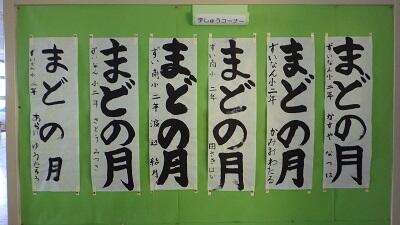 学しゅうコーナー
まどの月
ずいなん小二年 かすや なつは
まどの月
ずいなん小二年 かみみわたる
まどの月
ずい南小 二年
まどの月
ずい南小二年 渡辺
まどの月
ずいなん小二年 さとう みつき
まどの月
ずいなん小二年 あらい ゆうたろう